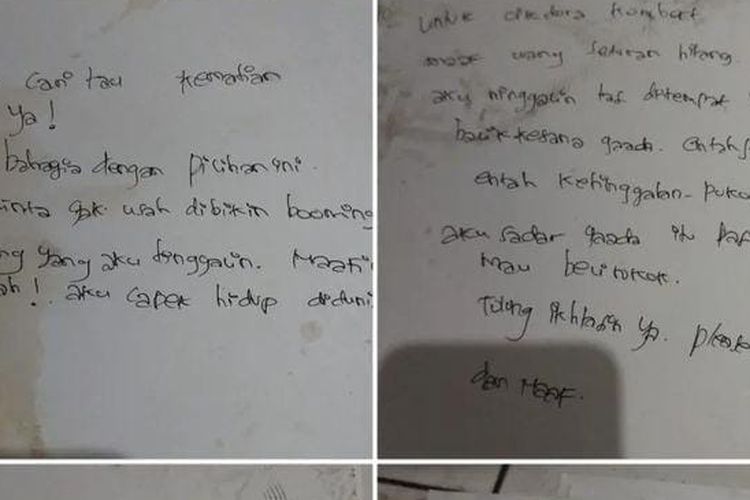 Cari tau kematian
ya!
bahagia dengan pilihan ini.
inta gak usah dibikin booming
ng yang aku tinggalin. Maafi
ah! aku capek hidup diduni
untuk kombat
maaf uang seturan hilang.
aku ninggalin tas ditempat
balik kesana gaada. entah
entah ketinggalan. puko
aku sadar gaada itu pas
mau beli rokok.
Tolong ikhlasin ya. please
dan Maaf.